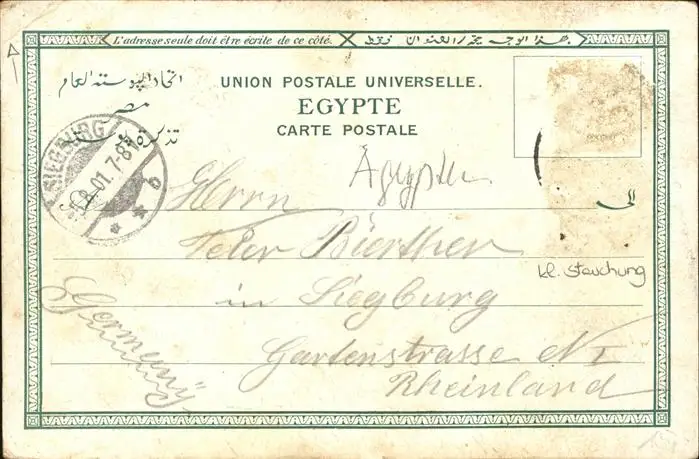 L'adresse seule doit être écrite de ce côté.
هذا الوجه يخص العنوان فقط
اتحاد البوسته العام
مصر
تذكرة
UNION POSTALE UNIVERSELLE.
EGYPTE
CARTE POSTALE
SIEGBURG
01. 7-8
Ägypten
Herrn
الى
Peter Bierther
kl. Stauchung
in Siegburg
Germany
Gartenstrasse
Rheinland